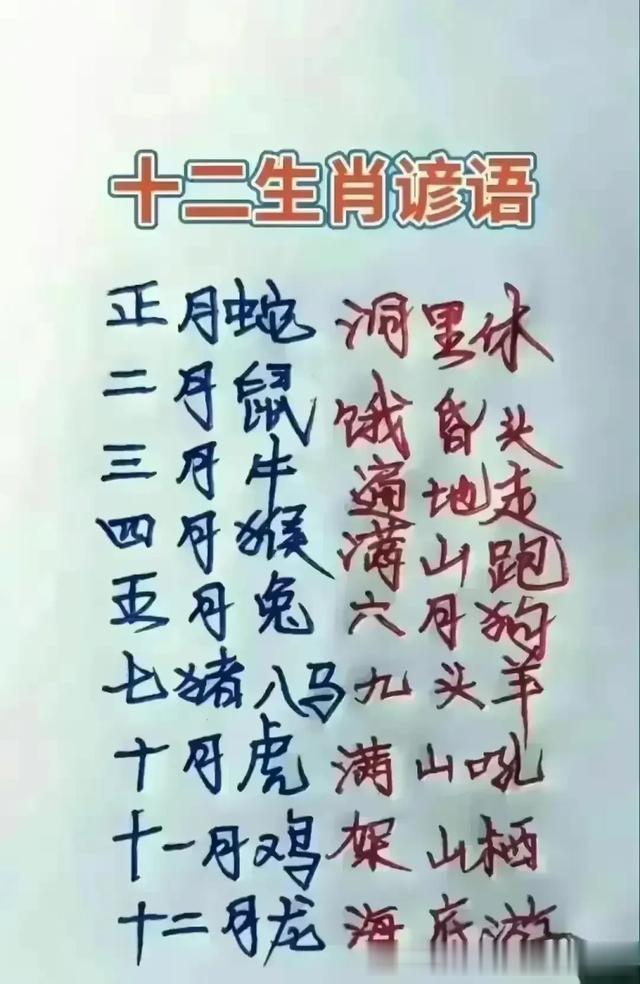 十二生肖谚语
正月蛇 洞里休
二月鼠 饿昏头
三月牛 遍地走
四月猴 满山跑
五月兔 六月狗
七猪八马九头羊
十月虎 满山吼
十一月鸡 架山栖
十二月龙 海底游